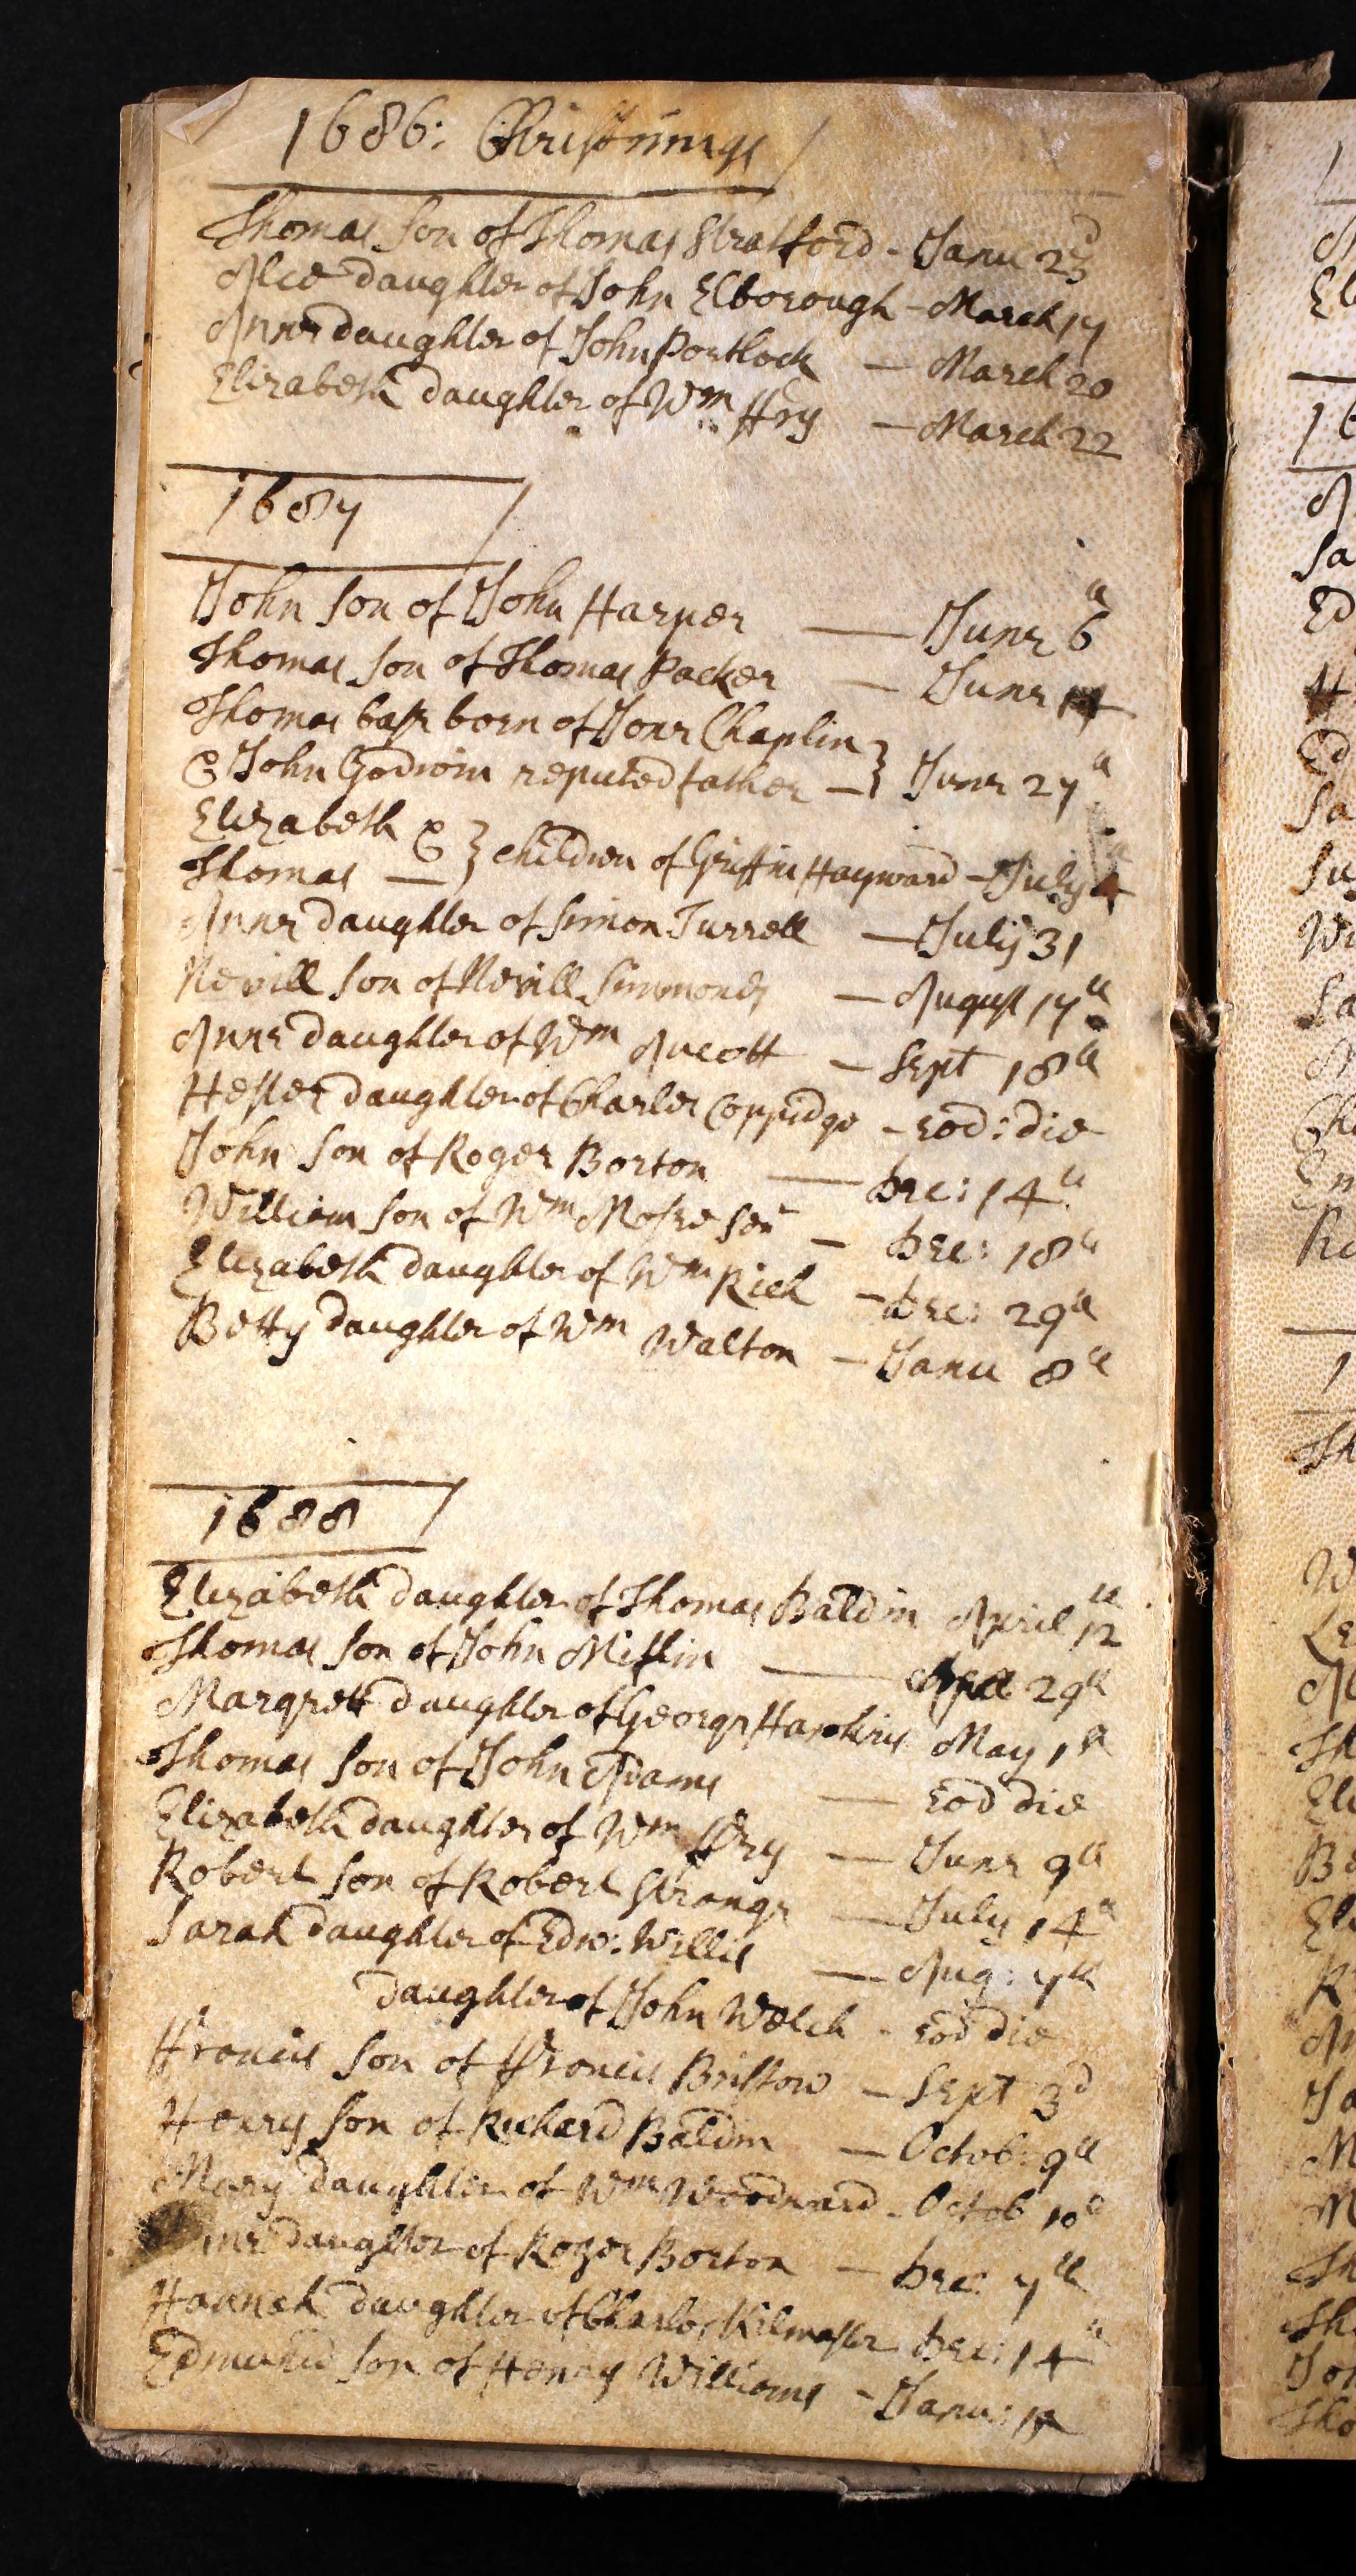 1686: Christnings
Thomas son of Thomas Stratford - Janu 23d
Alce daughter of John Elborough - March 17
Anne daughter of John Portlock - March 20
Elizabeth daughter of Wm ffry - March 22
1687
John son of John Harper - June 6th
Thomas son of Thomas Packer - June 14
Thomas base born of Jone Chaplin
& John Godwin reputed father - June 27th
Elizabeth &
Thomas - children of Griffin Hayward - July
Anne daughter of Simon Turrell - July 31
Nevill son of Nevill Simmonds - August 17th
Anne daughter of Wm Aucott - Sept 18th
Hester daughter of Charles Coppidge - eod: die
John son of Roger Borton - Dec: 14th
William son of Wm Mosse senr - Dec: 18th
Elizabeth daughter of Wm Rich - Dec: 29th
Betty daughter of Wm Walton - Janu 8th
1688
Elizabeth daughter of Thomas Baldin April 12th
Thomas son of John Miflin - Aprill 29th
Margrett daughter of George Hopkins May 1st
Thomas son of John Adams - eod die
Elizabeth daughter of Wm ffry - June 9th
Robert son of Robert Strange - July 14th
Sarah daughter of Edw: Willis - Aug: 7th
daughter of John Welch - eod die
Francis son of Francis Bristow - Sept 3d
Henry son of Richard Baldin - Octob: 9th
Mary daughter of Wm Woodward - Octob 10th
daughter of Roger Borton - Dec: 7th
Hannah daughter of Charles Kilmaster Dec: 14th
Edmund son of Henry Williams - Janu: